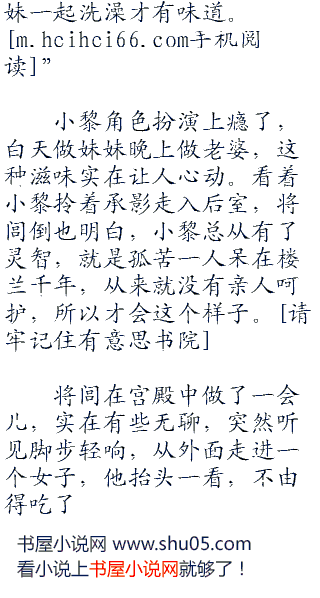 妹一起洗澡才有味道。
[m.hcihci66.com手机阅
读]”
小黎角色扮演上瘾了，
白天做妹妹晚上做老婆，这
种滋味实在让人心动。看着
小黎拎着承影走入后室，将
闾倒也明白，小黎总从有了
灵智，就是孤苦一人呆在楼
兰千年，从来就没有亲人呵
护，所以才会这个样子。[请
牢记住有意思书院]
将闾在宫殿中做了一会
儿，实在有些无聊，突然听
见脚步轻响，从外面走进一
个女子，他抬头一看，不由
得吃了
书屋小说网 www.shu05.com
看小说上书屋小说网就够了！